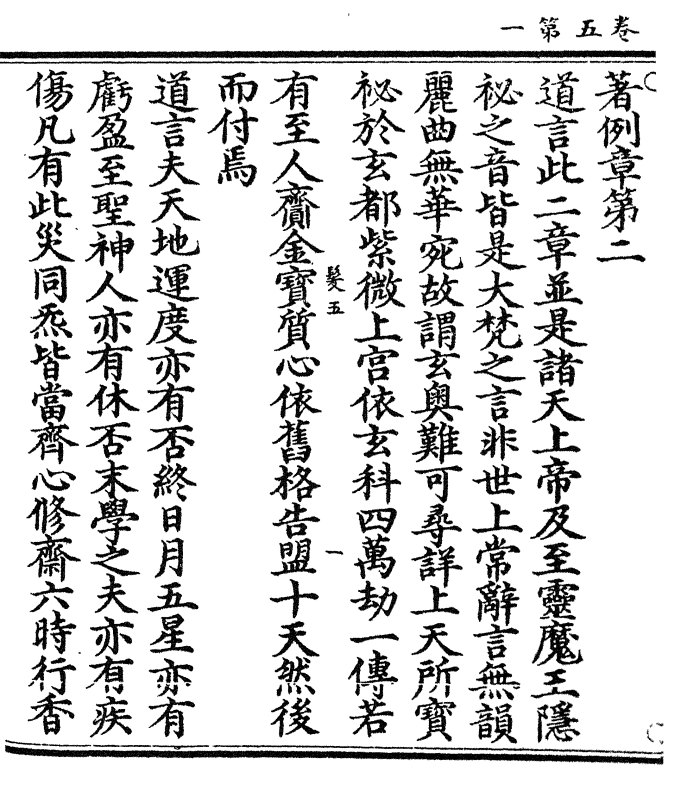 卷五第一
著例章第二
道言此二章並是諸天上帝及至靈魔王隱
祕之音皆是大梵之言非世上常辭言無韻
麗曲無華宛故謂玄奧難可尋詳上天所寶
祕於玄都紫微上宮依玄科四萬劫一傳若
髮五
一
有至人齎金寶質心依舊格告盟十天然後
而付焉
道言夫天地運度亦有否終日月五星亦有
虧盈至聖神人亦有休否末學之夫亦有疾
傷凡有此災同炁皆當齊心修齋六時行香